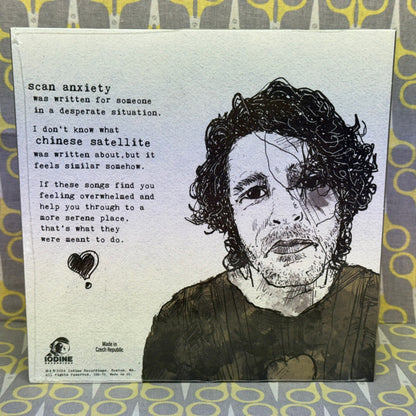 scan anxiety
was written for someone
in a desperate situation.
I don't know what
chinese satellite
was written about, but it
feels similar somehow.
If these songs find you
feeling overwhelmed and
help you through to a
more serene place.
that's what they
were meant to do.
IODINE
Made in
Czech Republic
Iodine Recordings, Boston, Ma.
All rights reserved.